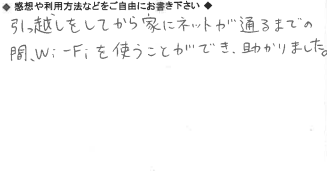 ◆ 感想や利用方法などをご自由にお書き下さい ◆
引っ越しをしてから家にネットが通るまでの
間、Wi-Fiを使うことができ、助かりました。